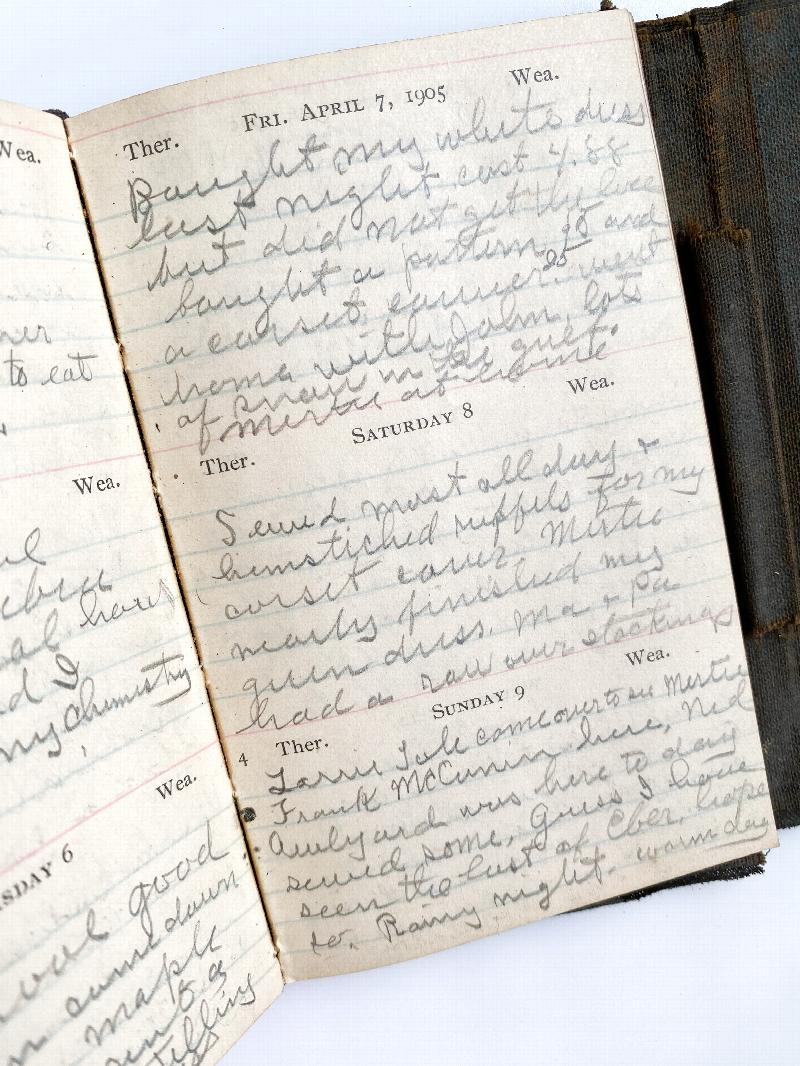 Wea.
ner
to eat
Wea.
al hour
d I
my chemistry
Wea.
SDAY 6
good
came down
maple
to a
telling
FRI. APRIL 7, 1905
Ther. Wea.
Baught my white dress
last night cost 4.88
but did not get the lace
baught a pattern 15 and
a corset cauver 25 went
home with John. lots
of snow in the
Mertie at home
SATURDAY 8
Ther. Wea.
Sewed most all day +
himstiched ruffels for my
corset cover Mertie
nearly finished my
green dress. Ma + Pa
had a row over stockings
SUNDAY 9
4 Ther. Wea.
come over to see Mertie
Frank McCunin here, Ned
was here to day
sewed some, Guess I have
seen the last of Eber. hope
so. Rainy night. warm day